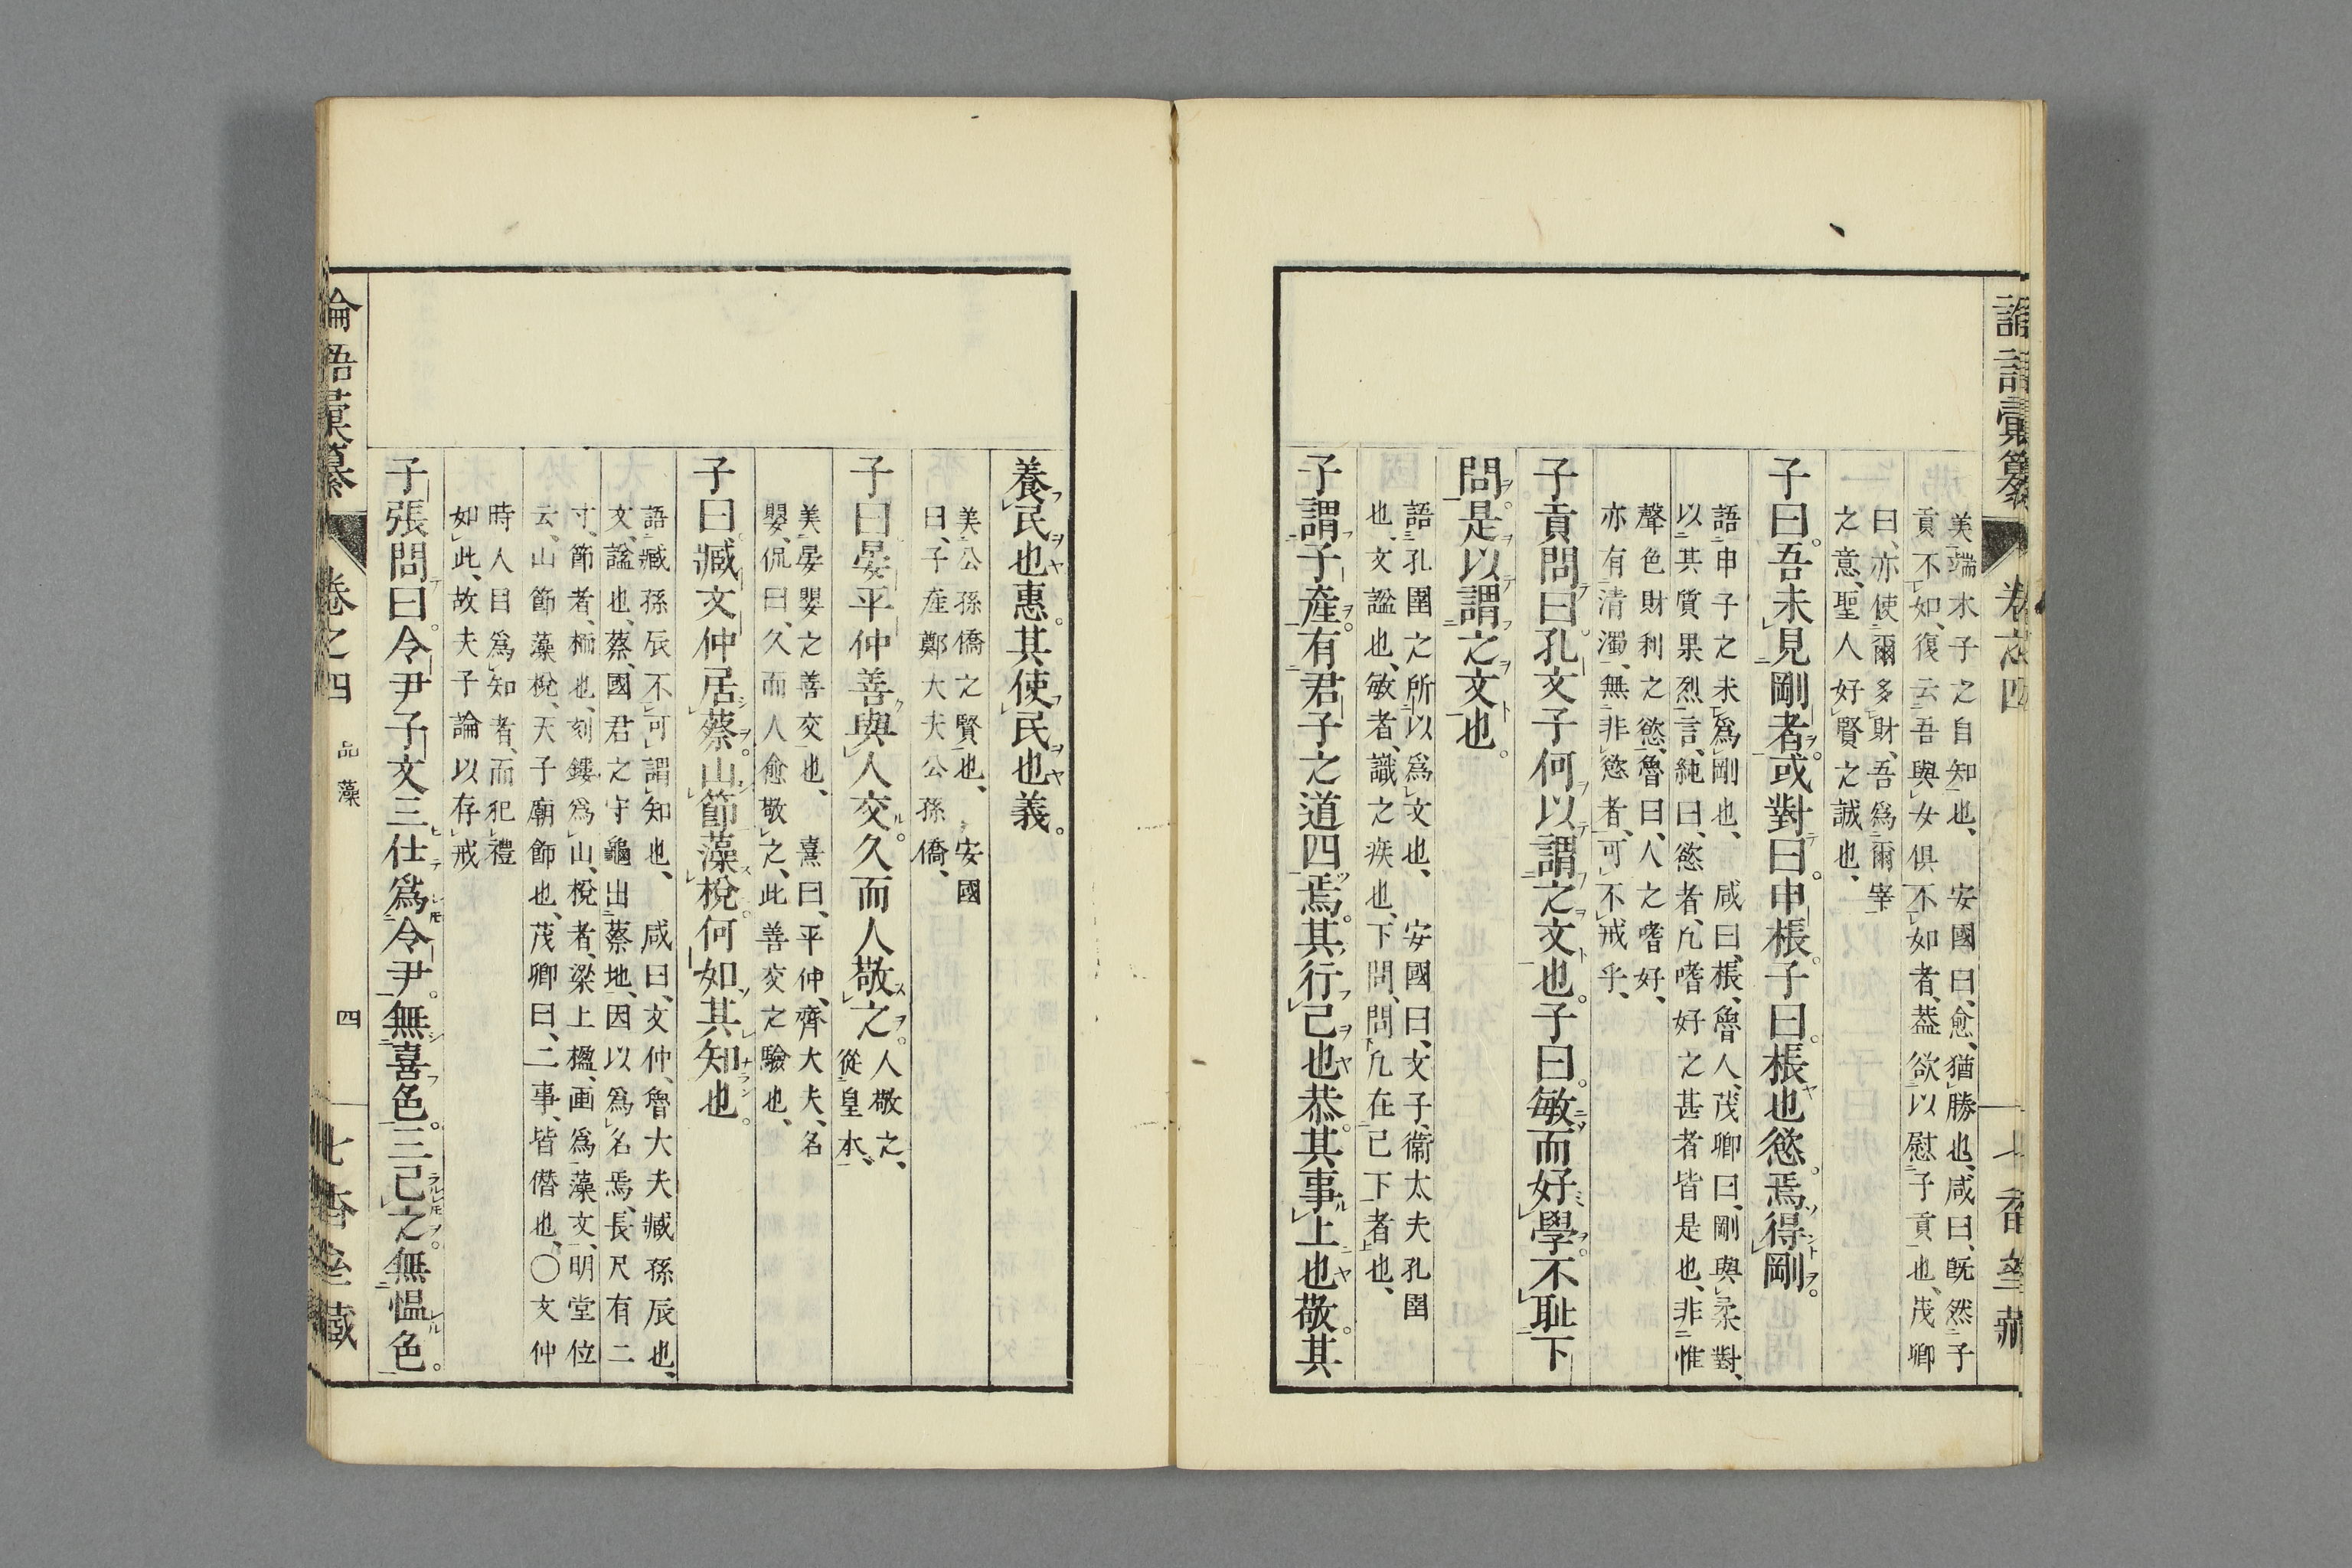 美端木子之自知也、安國曰、愈、猶勝也、咸曰、既然子
貢不如、復云吾與女俱不如者、蓋欲以慰子貢也、茂卿
曰、亦使爾多財、吾爲爾宰
之意、聖人好賢之誠也、
子曰。吾未見剛者。或對曰。申棖。子曰。棖也慾。焉得剛。
語申子之未爲剛也、咸曰、棖、魯人、茂卿曰、剛與柔對、
以其質果烈言、純曰、慾者、凡嗜好之甚者皆是也、非惟
聲色財利之慾、魯曰、人之嗜好、
亦有清濁、無非慾者、可不戒乎、
子貢問曰。孔文子何以謂之文也。子曰。敏而好學。不恥下
問。是以謂之文也。
語孔圉之所以爲文也、安國曰、文子、衞太夫孔圉
也、文謚也、敏者、識之疾也、下問、問凡在己下者也、
子謂子產。有君子之道四焉。其行己也恭。其事上也敬。其
養民也惠。其使民也義。
美公孫僑之賢也、安國
曰、子產鄭大夫公孫僑、
子曰。晏平仲善與人交。久而人敬之。人敬之、
從皇本、
美晏嬰之善交也、熹曰、平仲、齊大夫、名
嬰、侃曰、久而人愈敬之、此善交之驗也、
子曰。臧文仲居蔡。山節藻梲。何如其知也。
語臧孫辰不可謂知也、咸曰、文仲、魯大夫臧孫辰也、
文、謚也、蔡、國君之守龜、出蔡地、因以爲名焉、長尺有二
寸、節者、栭也、刻鏤爲山、梲者、梁上楹、画爲藻文、明堂位
云、山節藻梲、天子廟飾也、茂卿曰、二事、皆僭也、〇文仲
時人目爲知者、而犯禮
如此、故夫子論以存戒
子張問曰。令尹子文三仕爲令尹。無喜色。三已之。無慍色。
論語彙纂
卷之四
品藻
四
七香堂藏